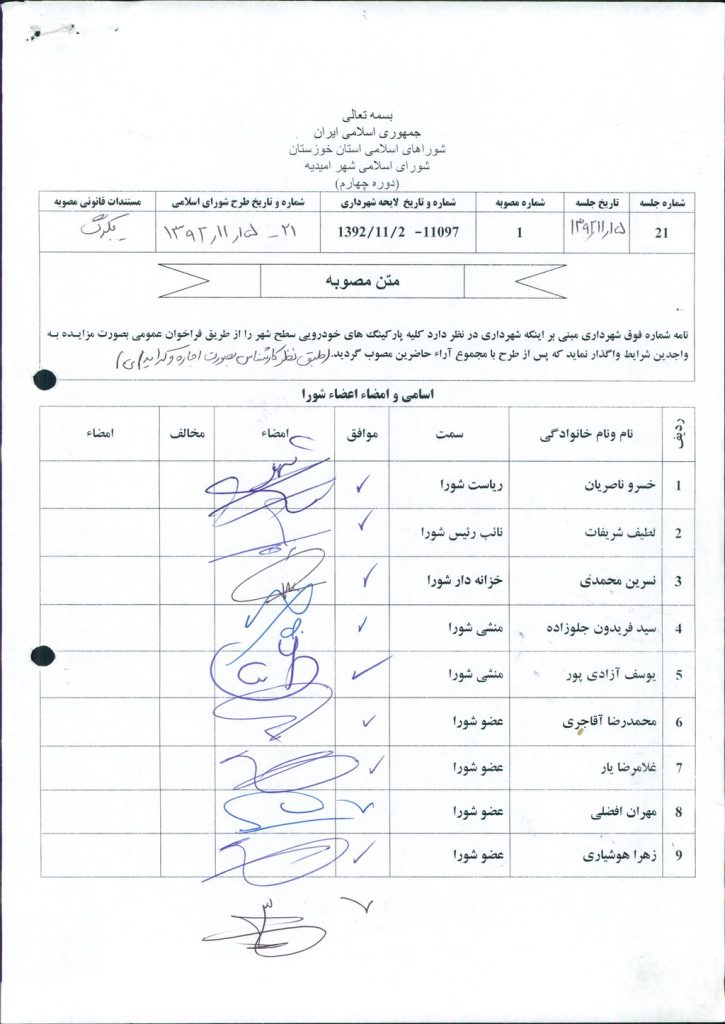 بسمه تعالی
جمهوری اسلامی ایران
شوراهای اسلامی استان خوزستان
شورای اسلامی شهر امیدیه
(دوره چهارم)
شماره جلسه تاریخ جلسه شماره مصوبه شماره و تاریخ لایحه شهرداری شماره و تاریخ طرح شورای اسلامی مستندات قانونی مصوبه
21 ۱۳۹۲/۱۱/۱۵ 1 1392/11/2 -11097 ۲۱ - ۱۳۹۲/۱۱/۱۵ یکبرگ
متن مصوبه
نامه شماره فوق شهرداری مبنی بر اینکه شهرداری در نظر دارد کلیه پارکینگ های خودرویی سطح شهر را از طریق فراخوان عمومی بصورت مزایده به
واجدین شرایط واگذار نماید که پس از طرح با مجموع آراء حاضرین مصوب گردید. (طبق نظر کارشناس بصورت اجاره
اسامی و امضاء اعضاء شورا
ردیف نام ونام خانوادگی سمت موافق امضاء مخالف امضاء
1 خسرو ناصریان ریاست شورا ✓
2 لطیف شریفات نائب رئیس شورا ✓
3 نسرین محمدی خزانه دار شورا ✓
4 سید فریدون جلوزاده منشی شورا ✓
5 یوسف آزادی پور منشی شورا ✓
6 محمدرضا آقاجری عضو شورا ✓
7 غلامرضا یار عضو شورا ✓
8 مهران افضلی عضو شورا ✓
9 زهرا هوشیاری عضو شورا ✓